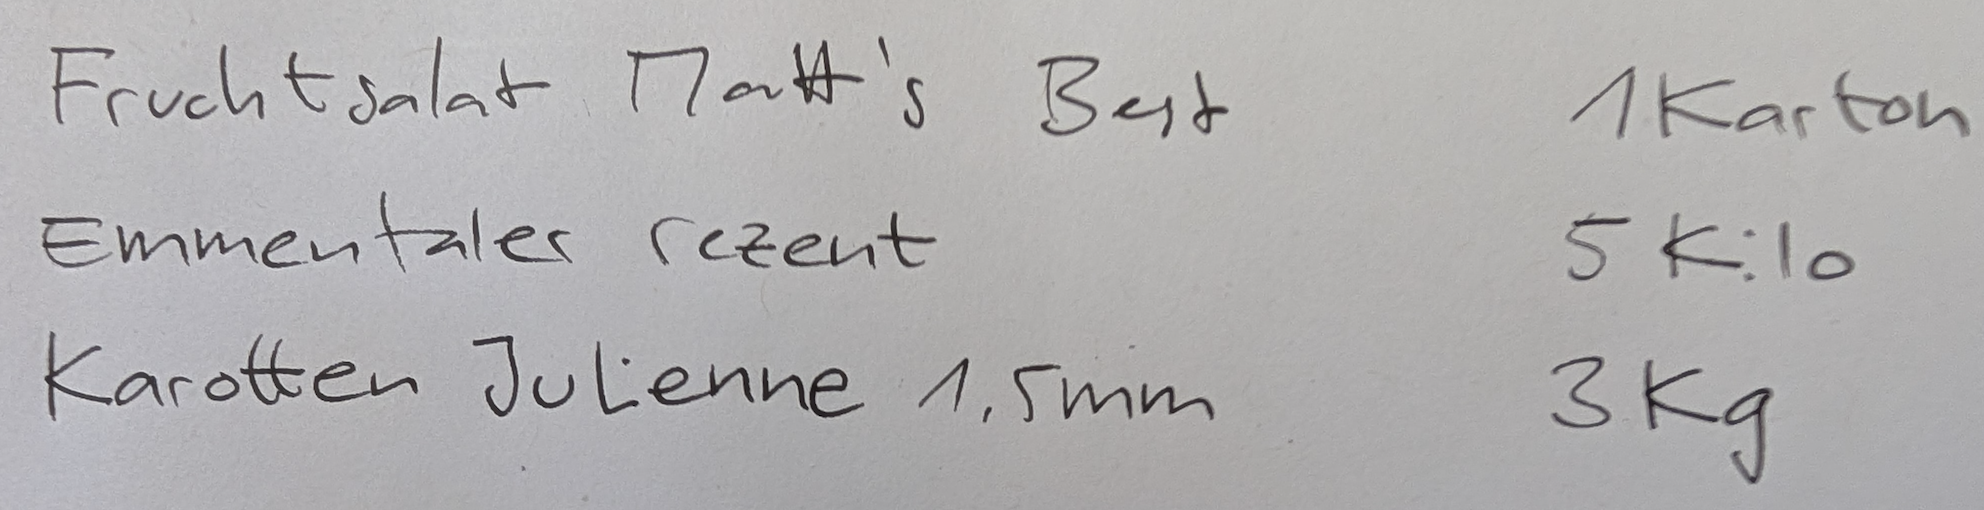 Fruchtsalat Matt's Best 1 Karton
Emmentaler rezent 5 Kilo
Karotten Julienne 1,5mm 3 Kg